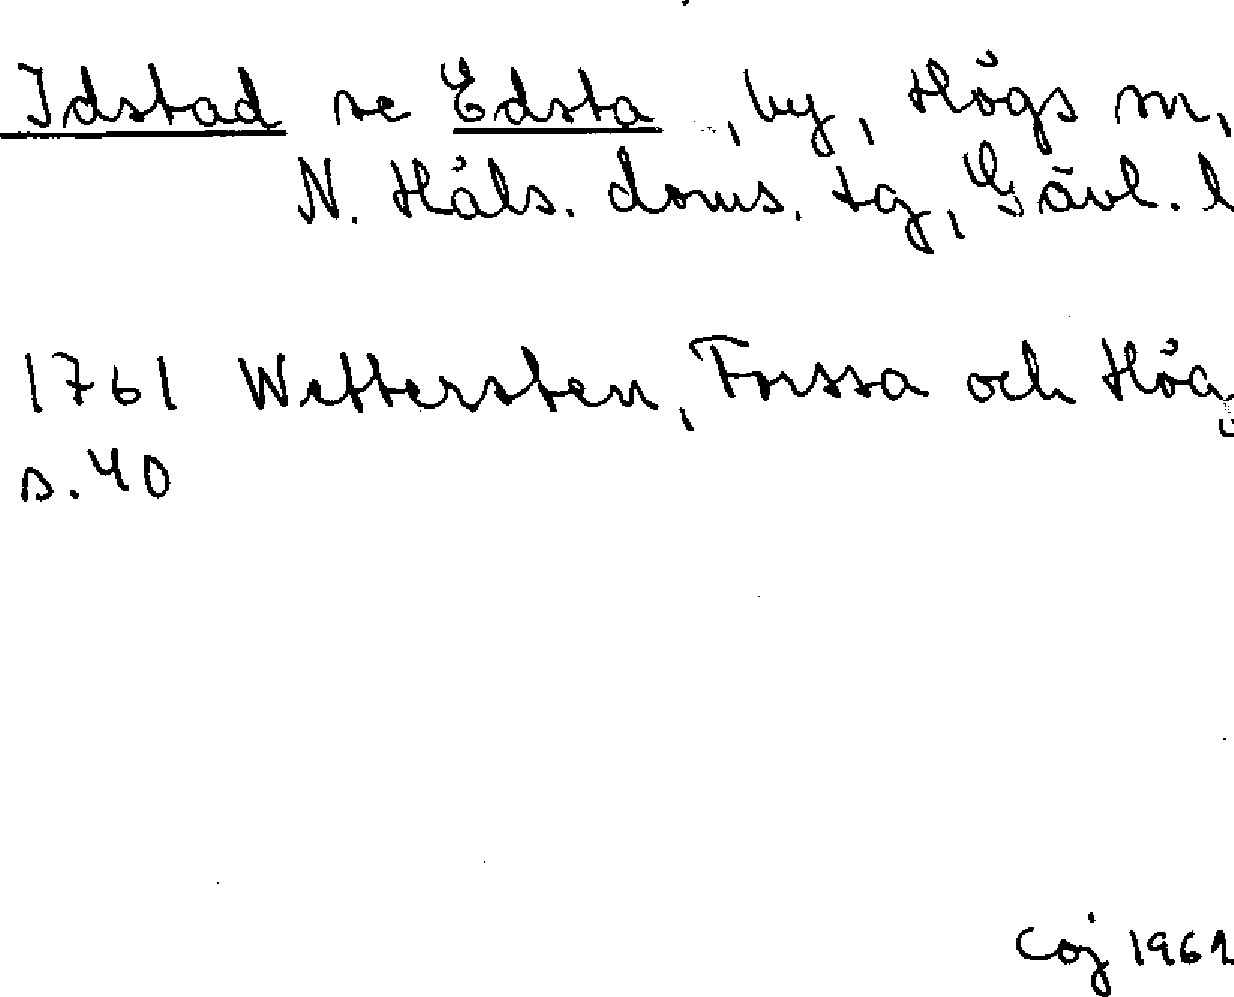 Idstad se Edsta, by, Högs sn,
N. Häls. doms. tg, Gävl. l
1761 Wettersten, Forssa och Hög
s. 40
Coj 1961